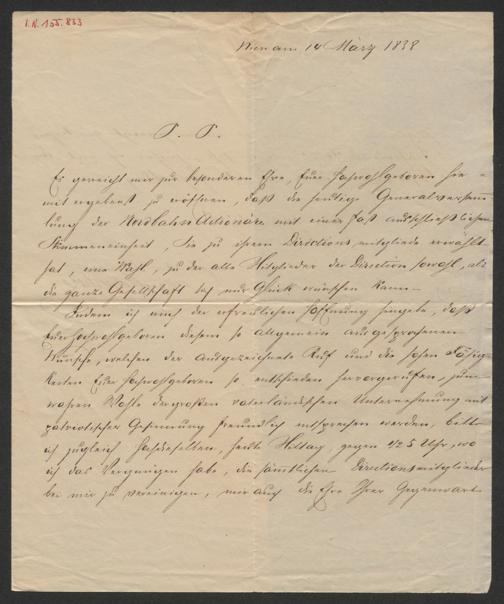 I.N. 155.833
Wien am 14 März 1838
P. P.
Es gereicht mir zur besonderen Ehre, Euer Hochwohlgeboren hie-
mit ergebenst zu eröffnen, daß die heutige Generalversamm
lung der Nordbahn Actionäre mit einer fast ausschließlichen
Stimmeneinheit, Sie zu ihrem Directionsmitgliede erwählt
hat, eine Wahl, zu der alle Mitglieder der Direction sowohl, als
die ganze Gesellschaft sich nur Glück wünschen kann.
Indem ich mich der erfreulichen Hoffnung hingebe, daß
Euer Hochwohlgeboren diesem so allgemein ausgesprochenen
Wunsche, welchen der ausgezeichnete Ruf und die hohen Fähig-
keiten Euer Hochwohlgeboren so entschieden hervorgerufen, zum
wahren Wohle der großen vaterländischen Unternehmung mit
patriotischer Gesinnung freundlich entsprechen werden, bitte
ich zugleich Hochdieselben, heute Mittag, gegen 1/2 5 Uhr, wo
ich das Vergnügen habe, die sämtlichen Directionsmitglieder
bei mir zu vereinigen, mir auch die Ehre Ihrer Gegenwart